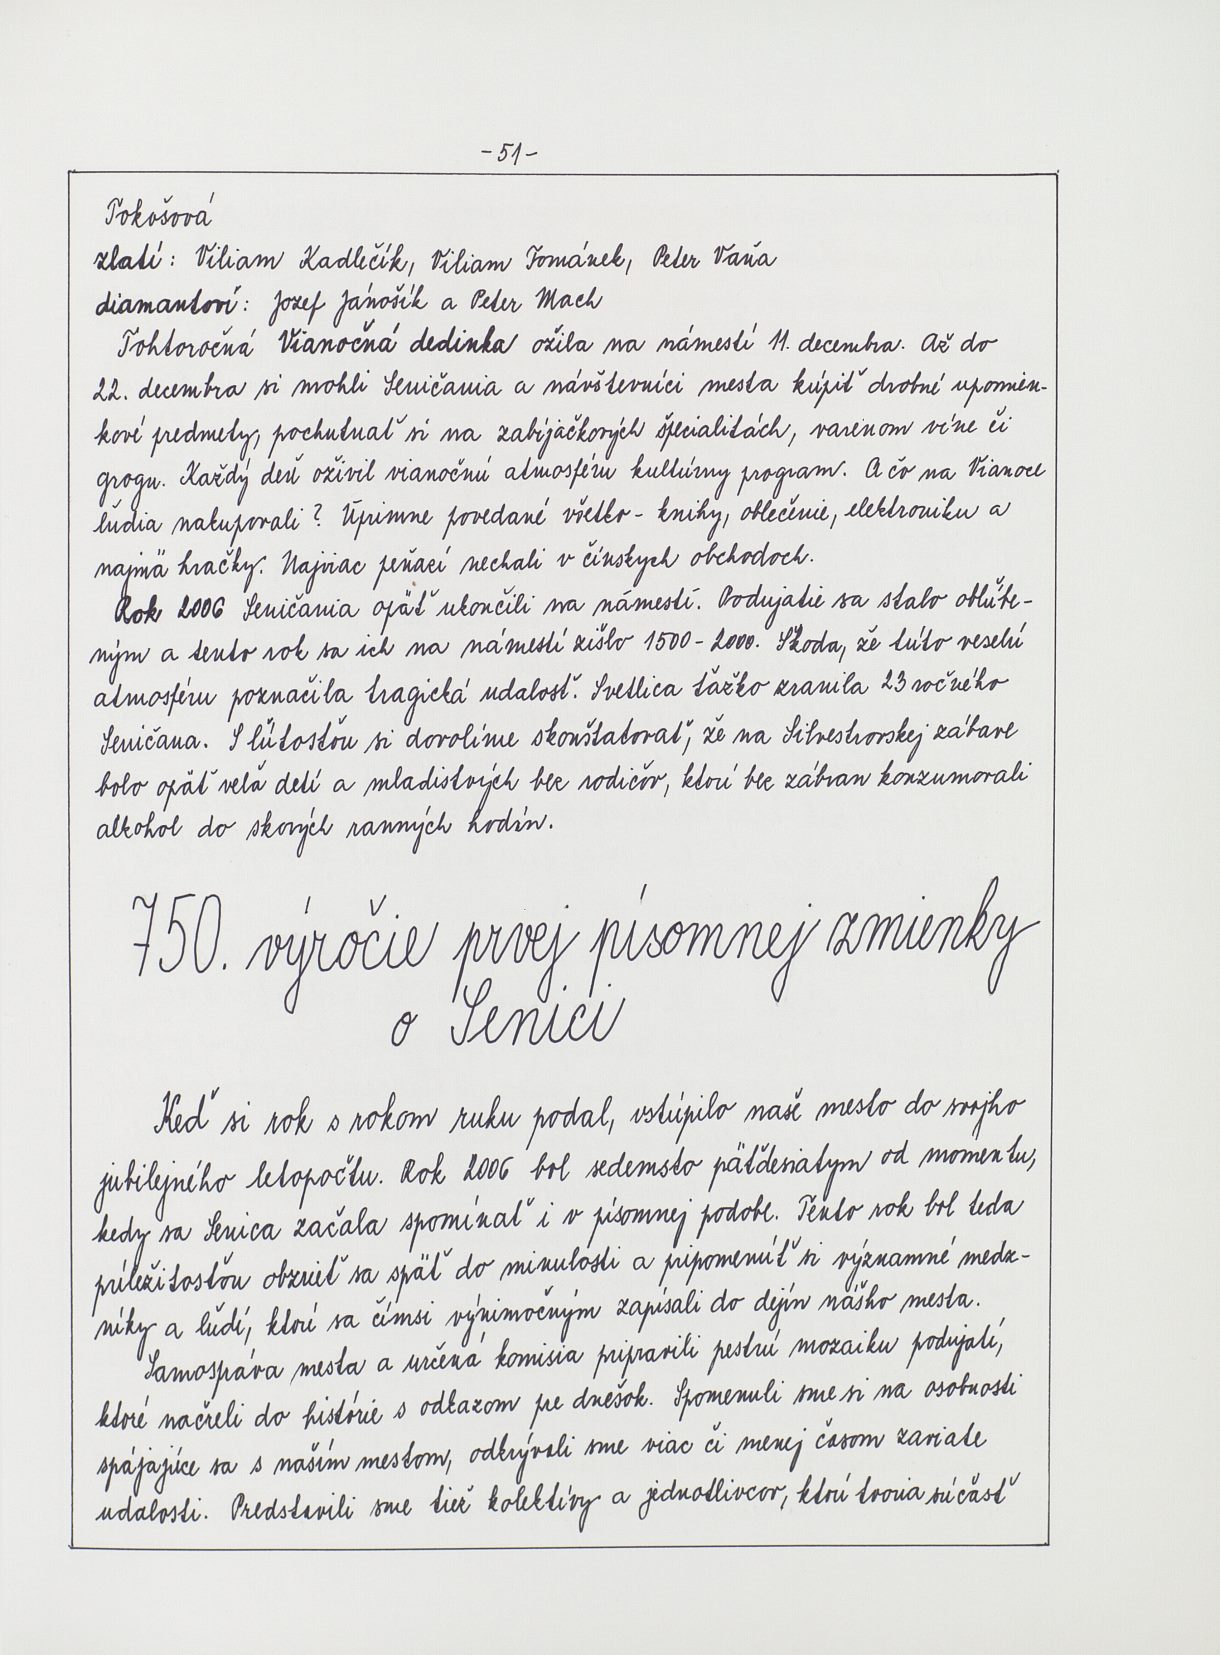 -51-
Tokošová
zlatí: Viliam Kadlečík, Viliam Tománek, Peter Vaňa
diamantoví: Jozef Jánošík a Peter Mach
Tohtoročná Vianočná dedinka ožila na námestí 11. decembra. Až do
22. decembra si mohli Seničania a návštevníci mesta kúpiť drobné upomien-
kové predmety, pochutnať si na zabíjačkových špecialitách, varenom víne či
grogu. Každý deň oživil vianočnú atmosféru kultúrny program. A čo na Vianoce
ľudia nakupovali? Úprimne povedané všetko - knihy, oblečenie, elektroniku a
najmä hračky. Najviac peňazí nechali v čínskych obchodoch.
Rok 2006 Seničania opäť ukončili na námestí. Podujatie sa stalo obľúbe-
ným a tento rok sa ich na námestí zišlo 1500-2000. Škoda, že túto veselú
atmosféru poznačila tragická udalosť. Svetlica ťažko zranila 23 ročného
Seničana. S ľútosťou si dovolíme skonštatovať, že na Silvestrovskej zábave
bolo opäť veľa detí a mladistvých bez rodičov, ktorí bez zábran konzumovali
alkohol do skorých ranných hodín.
750. výročie prvej písomnej zmienky
o Senici
Keď si rok s rokom ruku podal, vstúpilo naše mesto do svojho
jubilejného letopočtu. Rok 2006 bol sedemsto päťdesiatym od momentu,
kedy sa Senica začala spomínať i v písomnej podobe. Tento rok bol teda
príležitosťou obzrieť sa späť do minulosti a pripomenúť si významné medz-
níky a ľudí, ktorí sa čímsi výnimočným zapísali do dejín nášho mesta.
Samospráva mesta a určená komisia pripravili pestrú mozaiku podujatí,
ktoré načreli do histórie s odkazom pre dnešok. Spomenuli sme si na osobnosti
spájajúce sa s naším mestom, odkrývali sme viac či menej časom zaviate
udalosti. Predstavili sme tiež kolektívy a jednotlivcov, ktorí tvoria súčasť